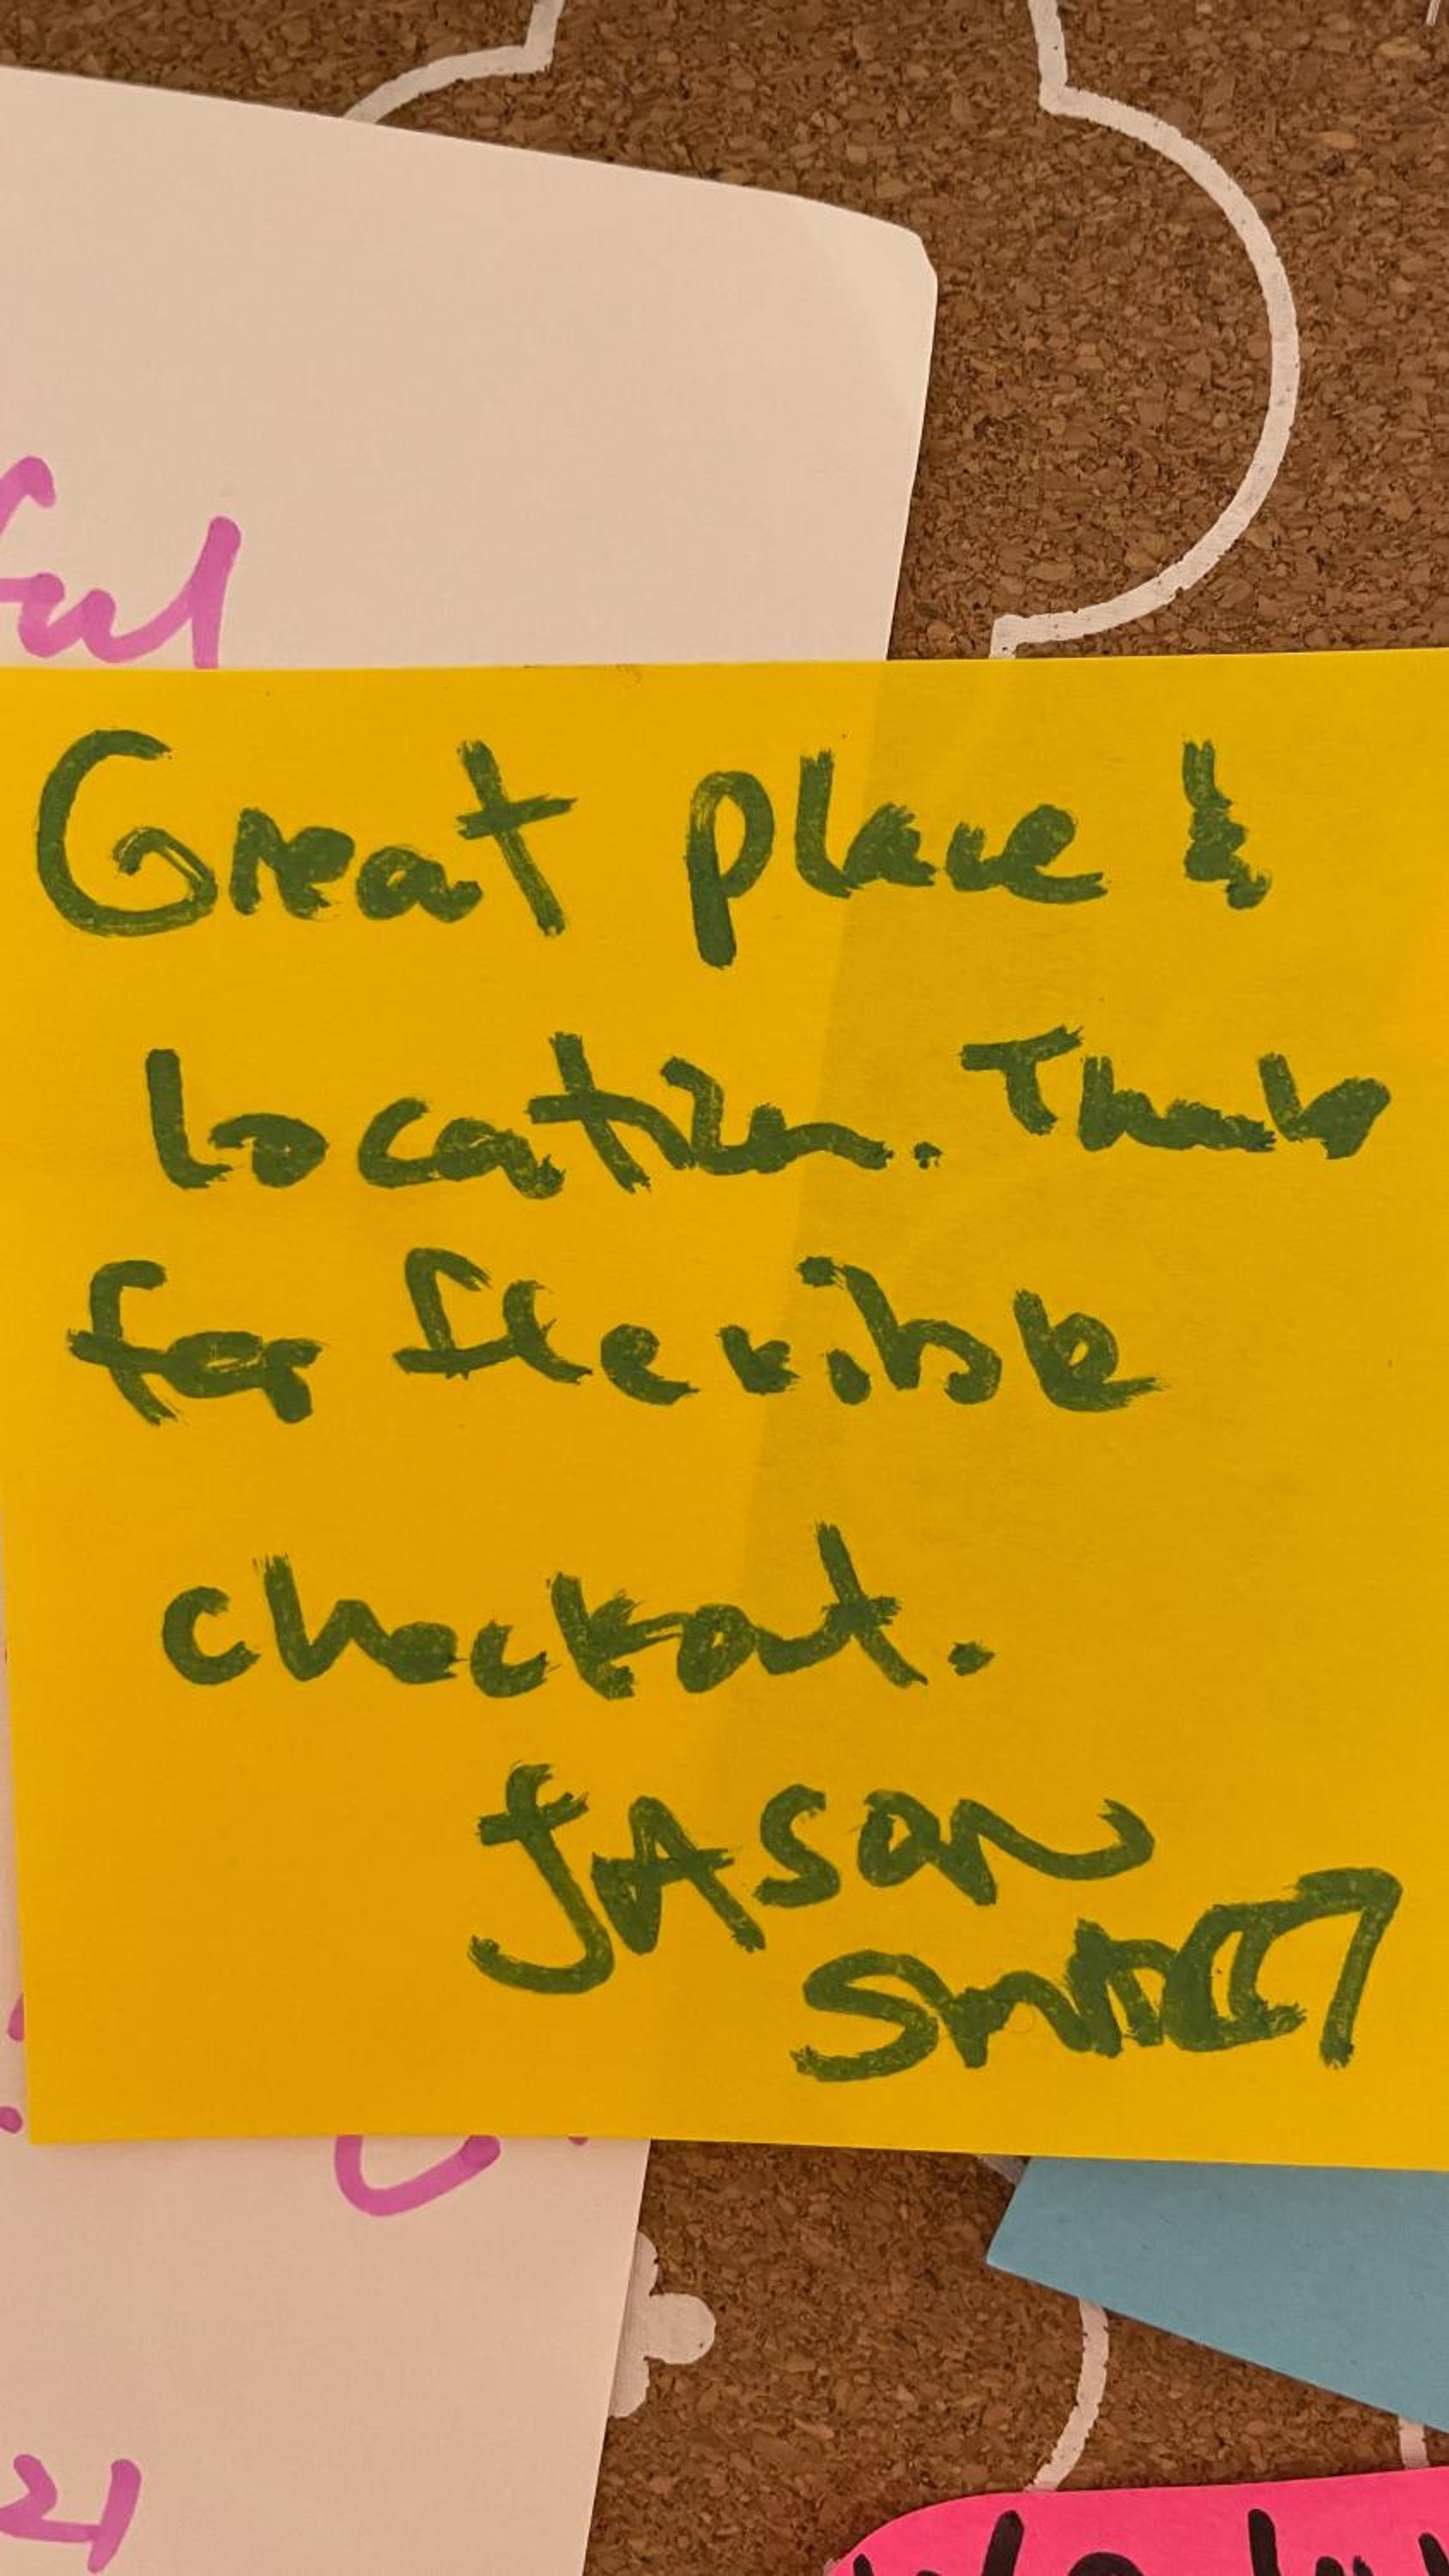 ful
Great place &
Location. Thanks
for flexible
checkout.
JASON
21